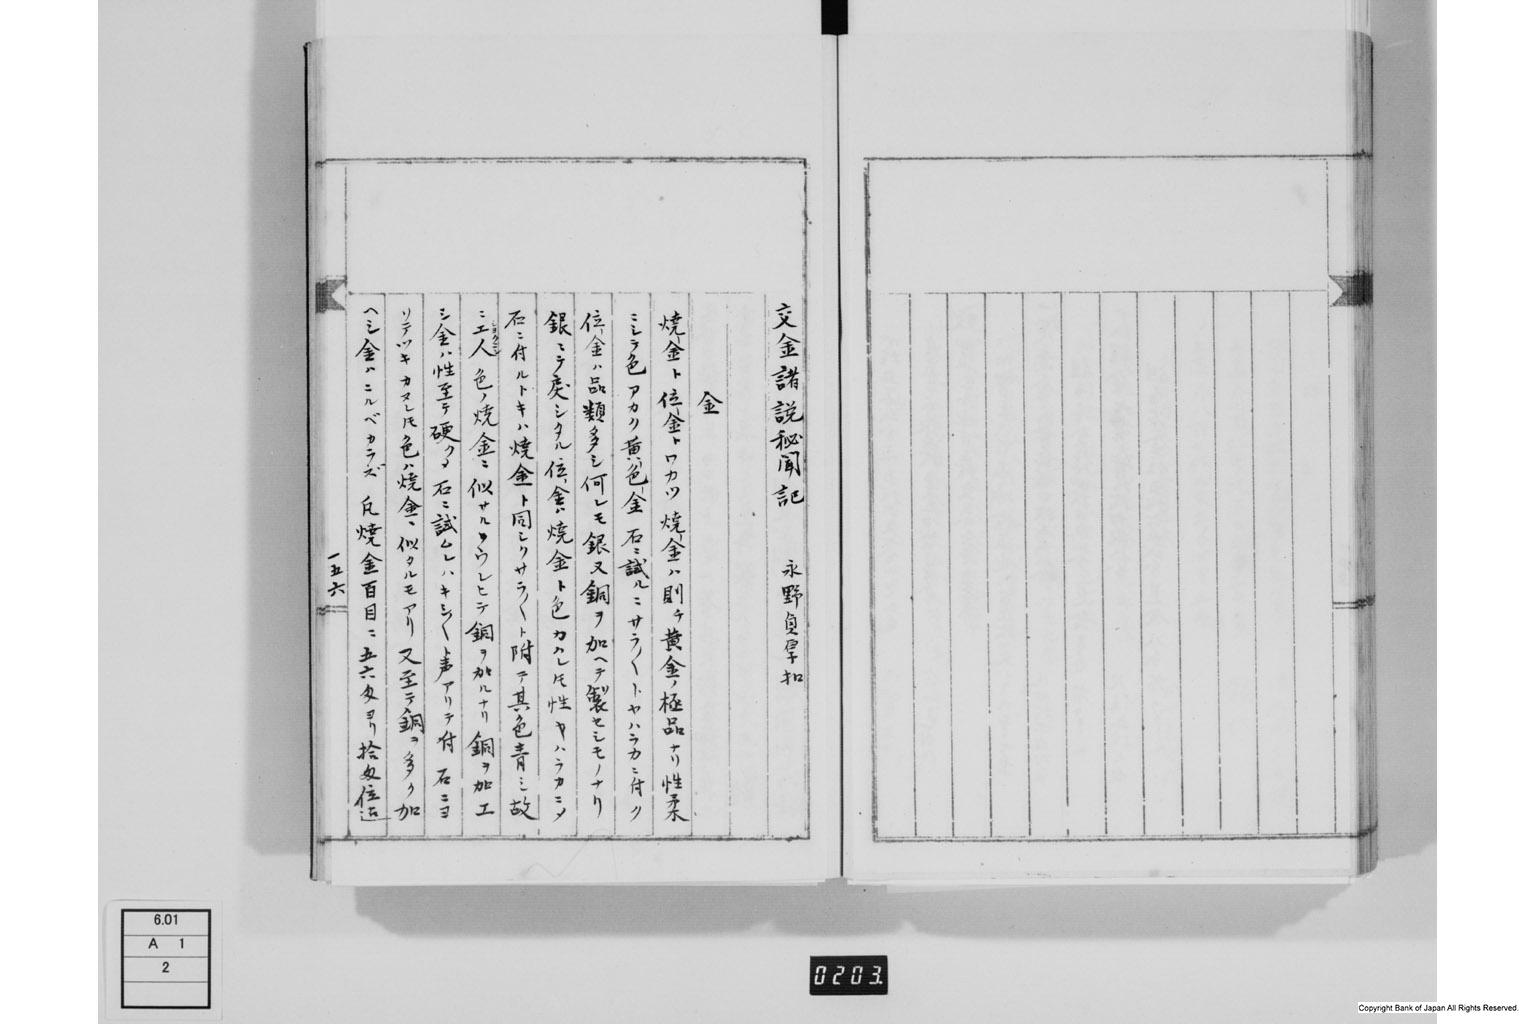 交金諸説秘聞記　永野貞厚扣
金
焼金ト位金トワカツ焼金ハ則チ黄金ノ極品ナリ性柔
ニシテ色アカリ黄色金石ニ試ルニサラ〱トヤハラカニ付ク
位金ハ品類多シ何レモ銀又銅ヲ加ヘテ製セシモノナリ
銀ニテ戻シタル位金ハ焼金ト色カハレ𪜈性ヤハラカニメ
石ニ付ルトキハ焼金ト同シクサラ〱ト附テ其色青シ故
ニ工人色ノ焼金ニ似サルヲウレヒテ銅ヲ加ルナリ銅ヲ加エ
ショクニン
シ金ハ性至テ硬クメ石ニ試ムレハキシ〱ト声アリテ付石ニヨ
リテツキカヌレ𪜈色ハ焼金ニ似タルモアリ又至テ銅ヲ多ク加
ヘシ金ハニルベカラズ凡焼金百目ニ五六匁ヨリ拾匁位迄
一五六
6.01
A 1
2
0203.
Copyright Bank of Japan All Rights Reserved.